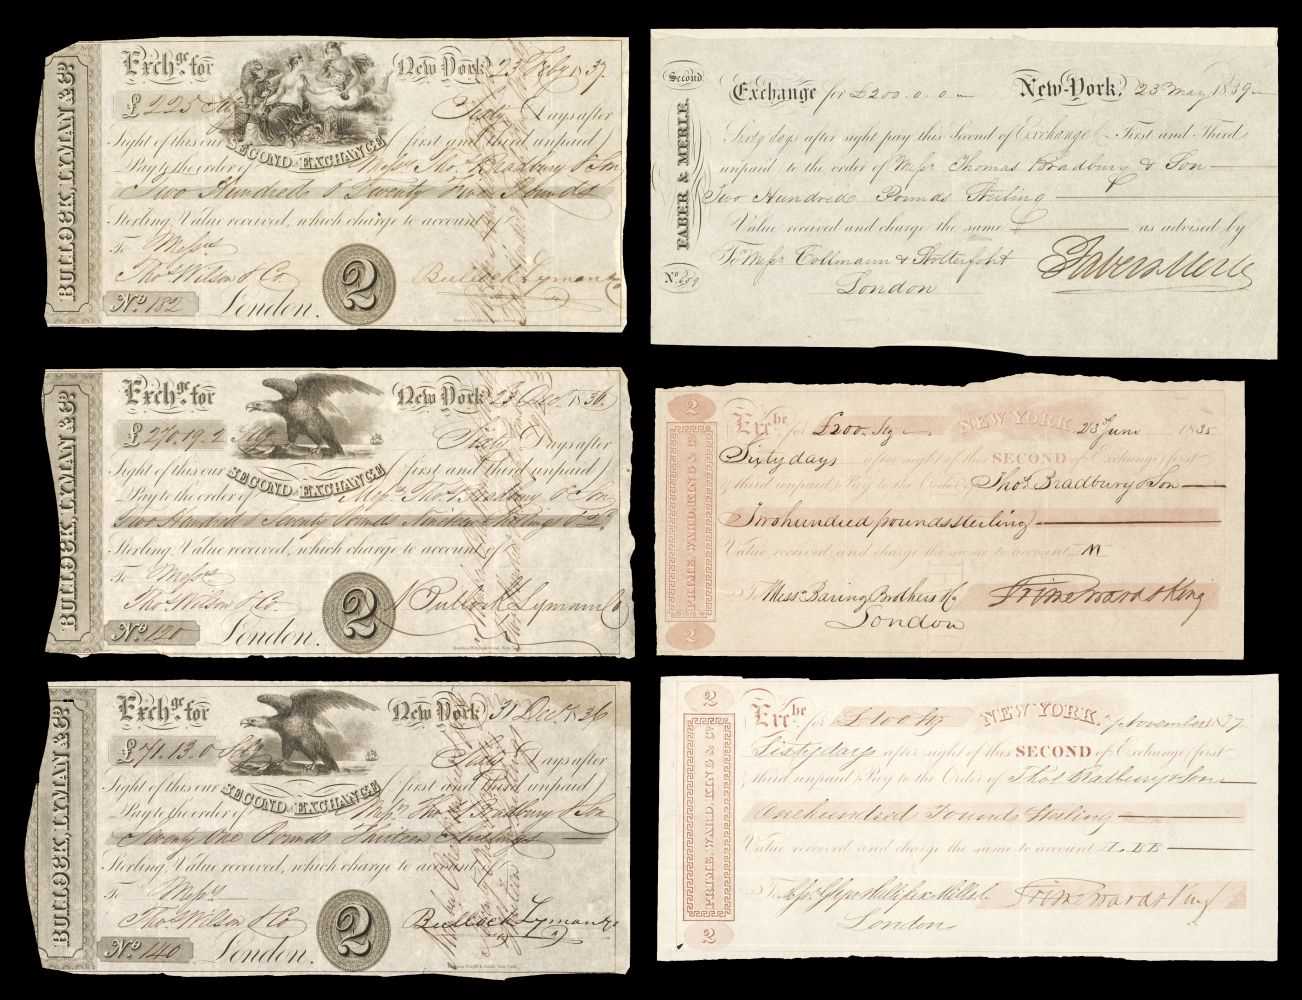 BULLOCK, LYMAN & Co.
Exchge. for New York 23 Feby 1837.
£ 225 Stg Sixty Days after
Sight of this our SECOND of EXCHANGE (first and third unpaid)
Pay to the order of Messrs Thos. Bradbury & Son
Two Hundred & Twenty five Pounds
Sterling, Value received, which charge to account of
To Messrs
Thos. Wilson & Co. 2 Bullock Lyman & Co
No 182 London.
Second
FABER & MERLE.
Exchange for £200.0.0 New-York, 23d May 1839
Sixty days after sight pay this Second of Exchange (First and Third
unpaid to the order of Messrs Thomas Bradbury & Son
Two Hundred Pounds Sterling
Value received and charge the same as advised by
To Messrs Collmann & Stolterfoht Faber & Merle
No. 609 London
BULLOCK, LYMAN & Co.
Exchge. for New York 1836.
£ 270.19.2 Stg Sixty Days after
Sight of this our SECOND of EXCHANGE (first and third unpaid)
Pay to the order of Messrs Thos. Bradbury & Son
Two Hundred & Seventy Pounds Nineteen Shillings & 2d
Sterling, Value received, which charge to account of
To Messrs
Thos. Wilson & Co. 2 Bullock Lyman & Co
No 120 London.
2
PRIME, WARD, KING & Co.
2
Exche for £200. Stg NEW YORK 23 June 1835
Sixty days after sight of this SECOND of Exchange (first
third unpaid) Pay to the Order of Thos. Bradbury & Son
Two hundred pounds sterling
Value received and charge the same to account M
To Messrs Baring Brothers & Co Prime Ward & King
London
BULLOCK, LYMAN & Co.
Exchge. for New York 31 Decr 1836
£ 71.13.0 Stg Sixty Days after
Sight of this our SECOND of EXCHANGE (first and third unpaid)
Pay to the order of Messrs Thos. Bradbury & Son
Seventy One Pounds Thirteen Shillings
Sterling, Value received, which charge to account
To Messrs
Thos. Wilson & Co 2 Bullock Lyman & Co
No 140 London.
2
PRIME, WARD, KING & Co.
2
Exche for £100 Stg NEW YORK. November 1837
Sixty days after sight of this SECOND of Exchange (first
third unpaid) Pay to the Order of Thos Bradbury & Son
One hundred Pounds Sterling
Value received and charge the same to account
To Messrs Glyn Hallifax Mills & Co Prime Ward & King
London